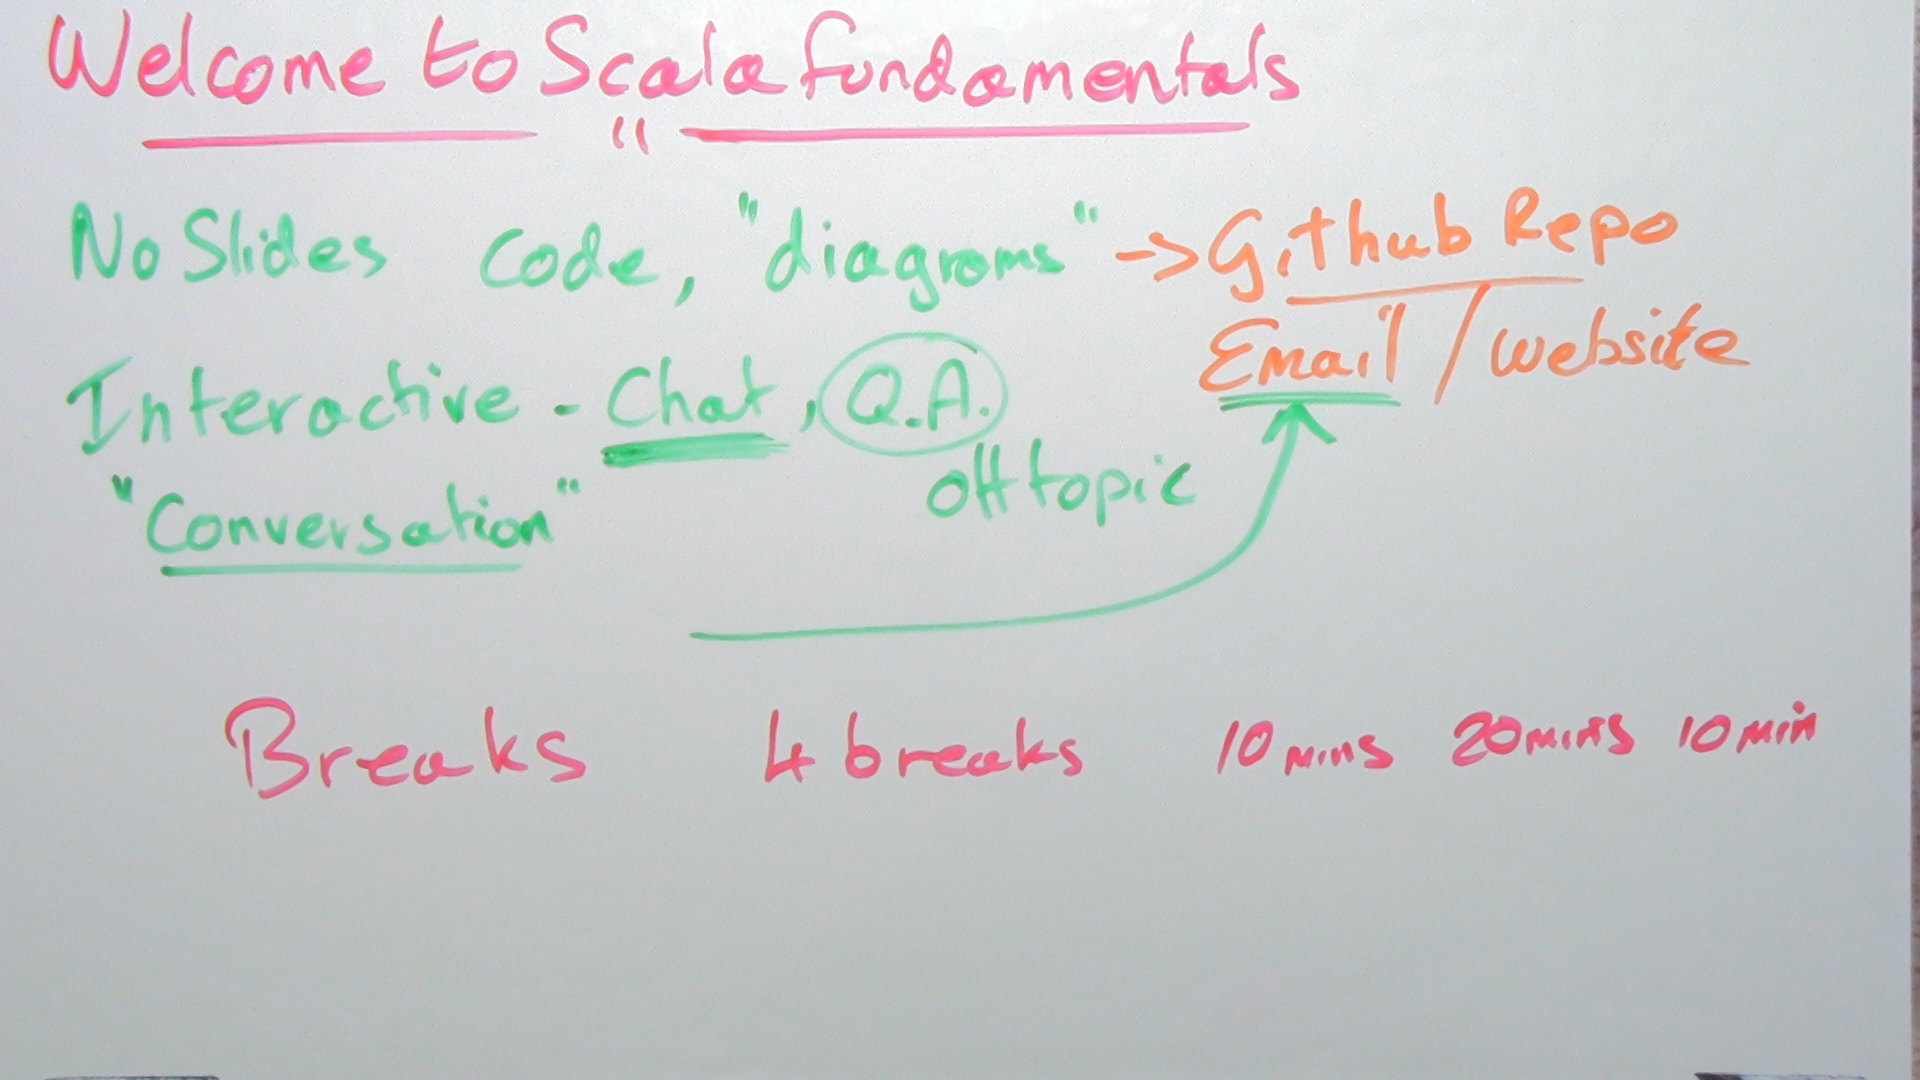 Welcome to Scala fundamentals
No Slides code, "diagrams" -> Github Repo
Email / website
Interactive - Chat, Q.A.
off topic
"Conversation"
Breaks 4 breaks 10 mins 20 mins 10 min